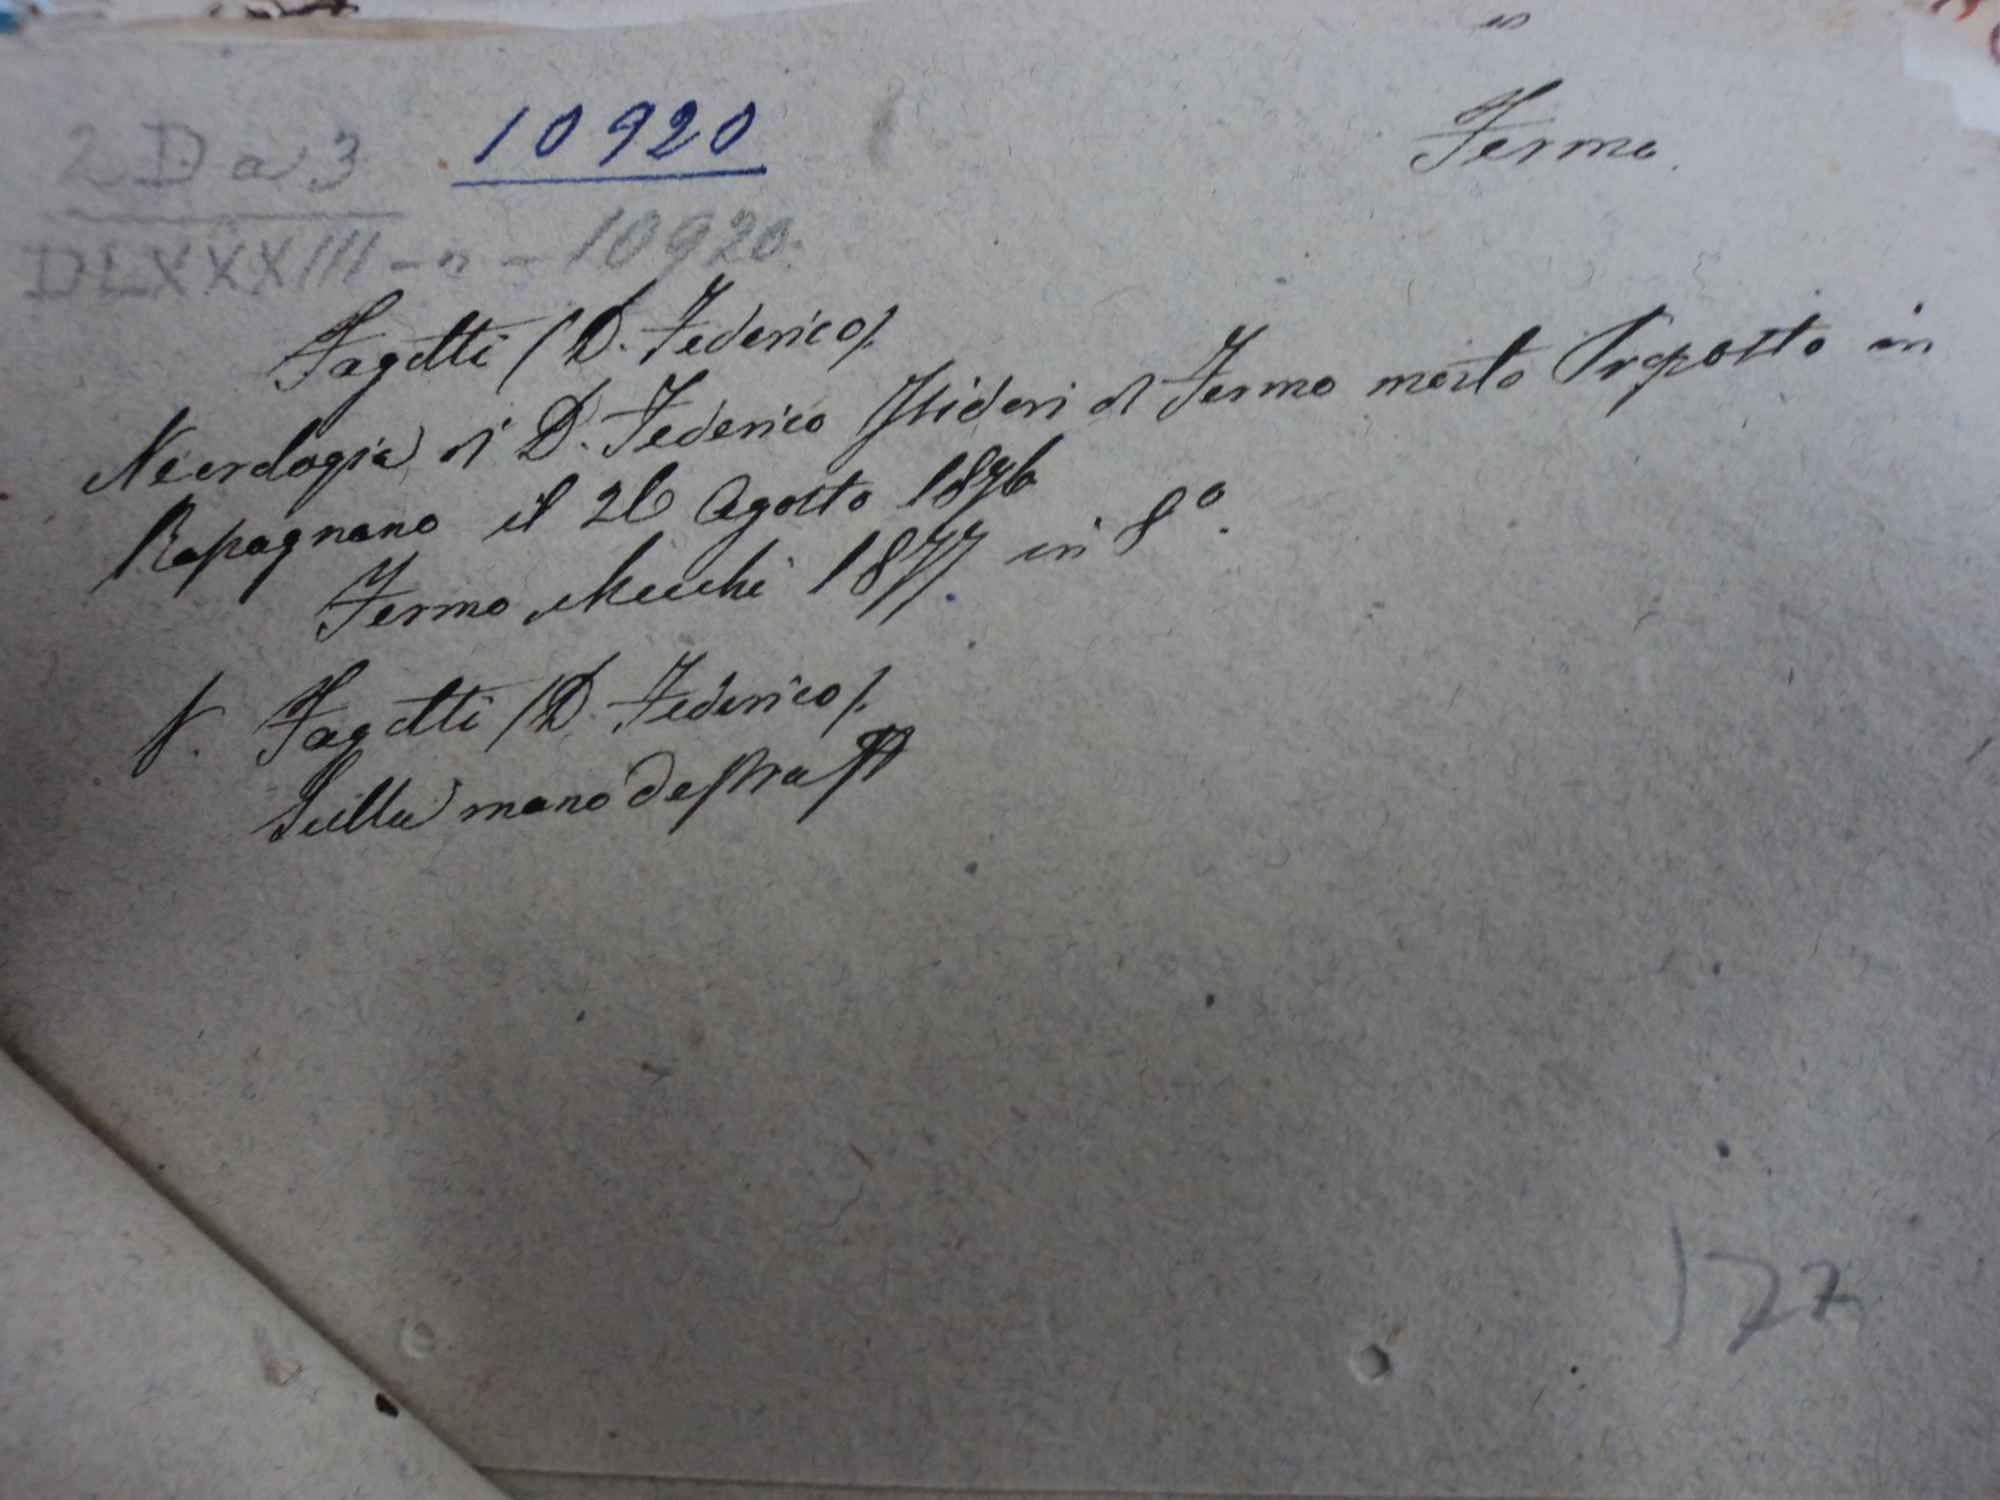 2 D a 3 10920 Fermo.
DLXXXIII - n - 10920.
Fagotti (D. Federico).
Necrologia di D. Federico Isidori di Fermo morto Proposto in
Rapagnano il 26 Agosto 1876
Fermo, Mecchi 1877 in 8º.
N. Fagotti (D. Federico).
Sulla mano destra
177